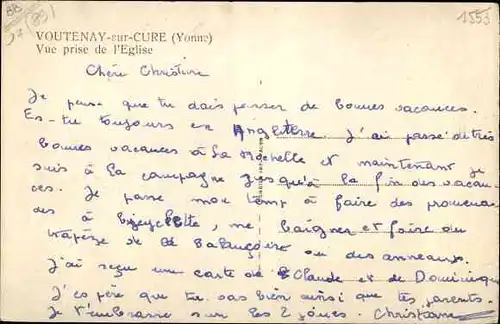 1553
VOUTENAY-sur-CURE (Yonne)
Vue prise de l'Eglise
Chère Christine
Je pense que tu dois passer de bonnes vacances.
Es-tu toujours en Angleterre. J'ai passé de très
bonnes vacances à La Rochelle et maintenant je
suis à la campagne jusqu'à la fin des vacan
ces. Je passe mon temp à faire des promenac
des à bicyclette, me baigner et faire du
trapèze de balançoire ou des anneaux.
J'ai reçu une carte de Claude et de Dominique
J'espère que tu vas bien ainsi que tes parents.
Je t'embrasse sur les 2 joues. Christiane